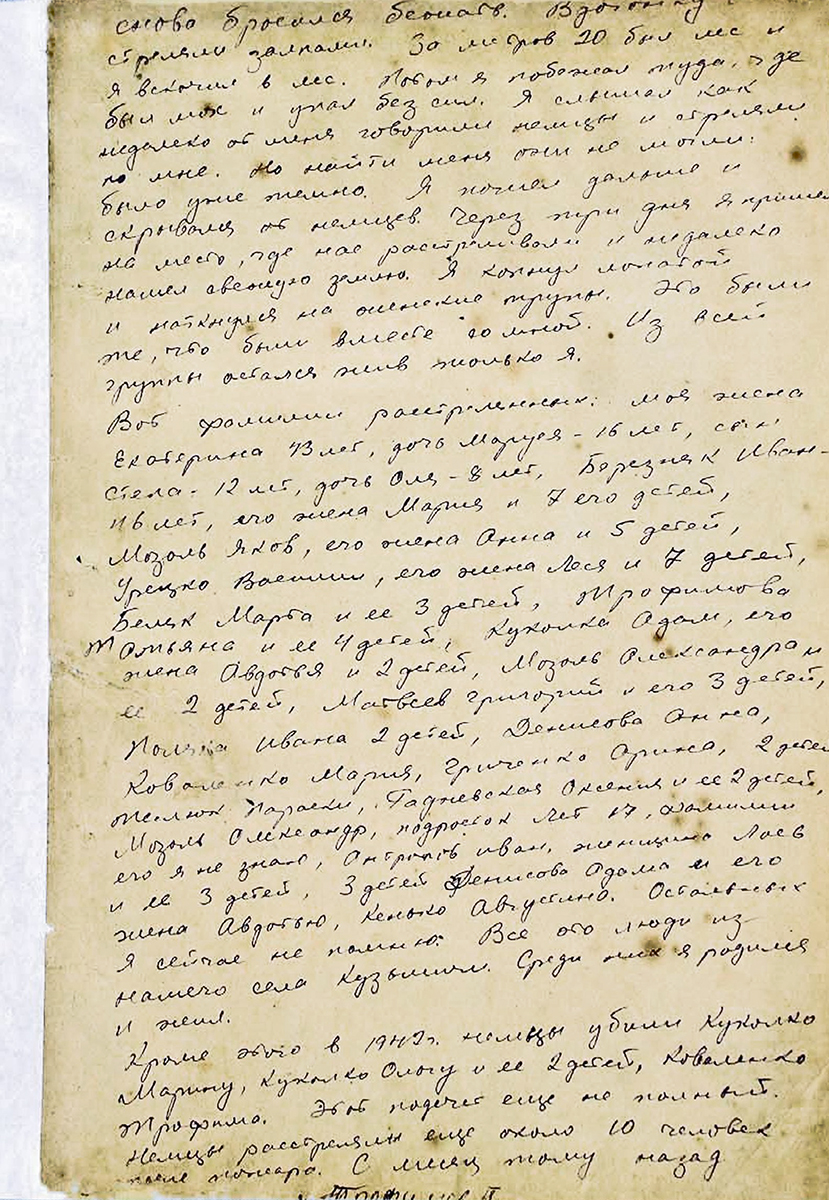 снова бросился бежать. Вдогонку
стреляли залпами. За метров 20 был лес и
я вскочил в лес. Потом я побежал туда, где
был мох и упал без сил. Я слышал как
недалеко от меня говорили немцы и стреляли
по мне. Но найти меня они не могли:
было уже темно. Я пошел дальше и
скрывался от немцев. Через три дня я пришел
на место, где нас расстреливали и недалеко
нашел свежую землю. Я копнул лопатой
и наткнулся на женские трупы. Это были
же, что были вместе со мной. Из всей
группы остался жив только я.
Вот фамилии расстрелянных: моя жена
Екатерина 43 лет, дочь Маруся - 16 лет, сын
Степа - 12 лет, дочь Оля - 8 лет, Березняк Иван -
46 лет, его жена Мария и 7 его детей,
Мозоль Яков, его жена Анна и 5 детей,
Урецко Василий, его жена Леся и 7 детей,
Белик Марта и ее 3 детей, Трофимова
Татьяна и ее 4 детей, Куколка Адам, его
жена Авдотья и 2 детей, Мозоль Александра и
ее 2 детей, Матвеев Григорий и его 3 детей,
Ивана 2 детей, Денисова Анна,
Коваленко Мария, Гриченко Арина, 2 детей
Параски, Гадневская Оксения и ее 2 детей,
Мозоль Олександр, подросток лет 17, фамилии
его я не знаю, Иван, женщина
и ее 3 детей, 3 детей Денисова Адама и его
жена Авдотью, Кенько Августина. Остальных
я сейчас не помню. Все это люди из
нашего села Кузьмичи. Среди них я родился
и жил.
Кроме этого в 1942 г. немцы убили Куколко
Марину, Куколко Ольгу и ее 2 детей, Коваленко
Трофима. Этот подсчет еще не полный.
Немцы расстреляли еще около 10 человек
после пожара. С месяц тому назад